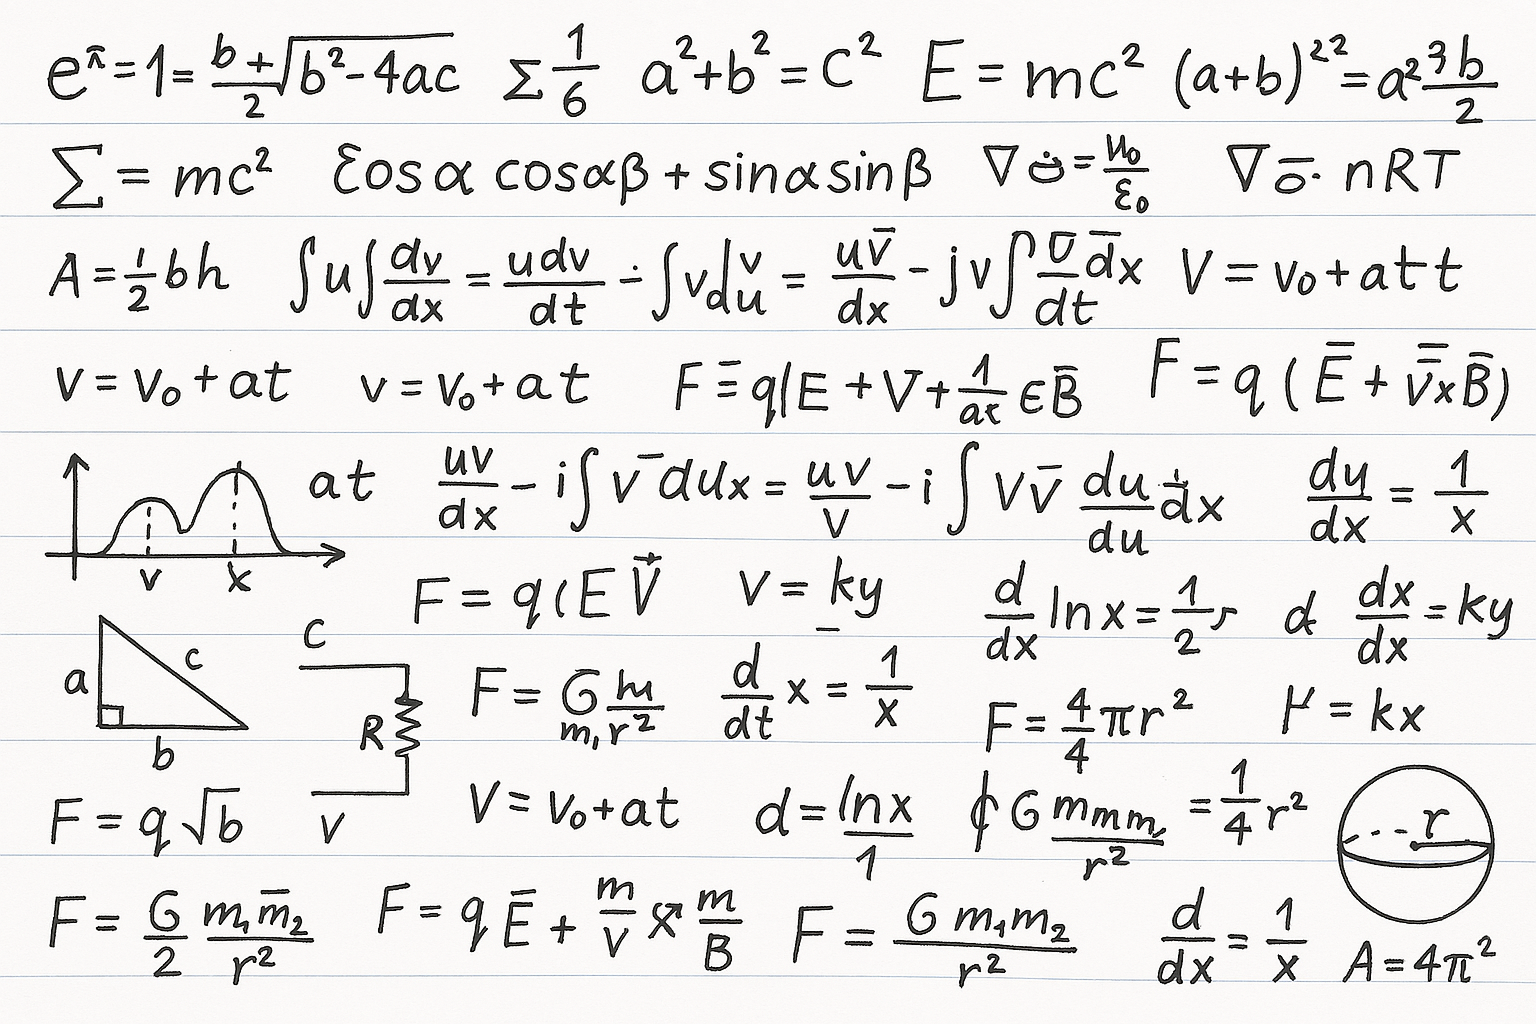 e^π=1= b+√b²-4ac/2 Σ 1/6 a²+b²=c² E=mc² (a+b)²²=a² 3b/2
Σ=mc² εosα cosαβ+sinαsinβ ∇ =u₀/ε₀ ∇ō· nRT
A=½bh ∫u∫dv/dx=udv/dt÷∫vdv/u=uv̄/dx-jv∫ /dt d̄x V=v₀+att
v=v₀+at v=v₀+at F=q|E+V+1/at ϵB̄ F=q(Ē+v̿xB̄)
at uv/dx-i∫v¯dux=uv/v-i∫Vv̄ du/du dx dy/dx=1/x
v x
F=q(EV⃗ V=ky d/dx lnx=1/2 d dx/dx=ky
a c b
C R V
F=G m/m₁r² d/dt x=1/x F=4/4πr² μ=kx
F=q√b V=v₀+at d=lnx/1 ∮G mmm/r²=1/4r² r
F=G/2 m₁m̄₂/r² F=qĒ+m/v m/B F=Gm₁m₂/r² d/dx=1/x A=4π²